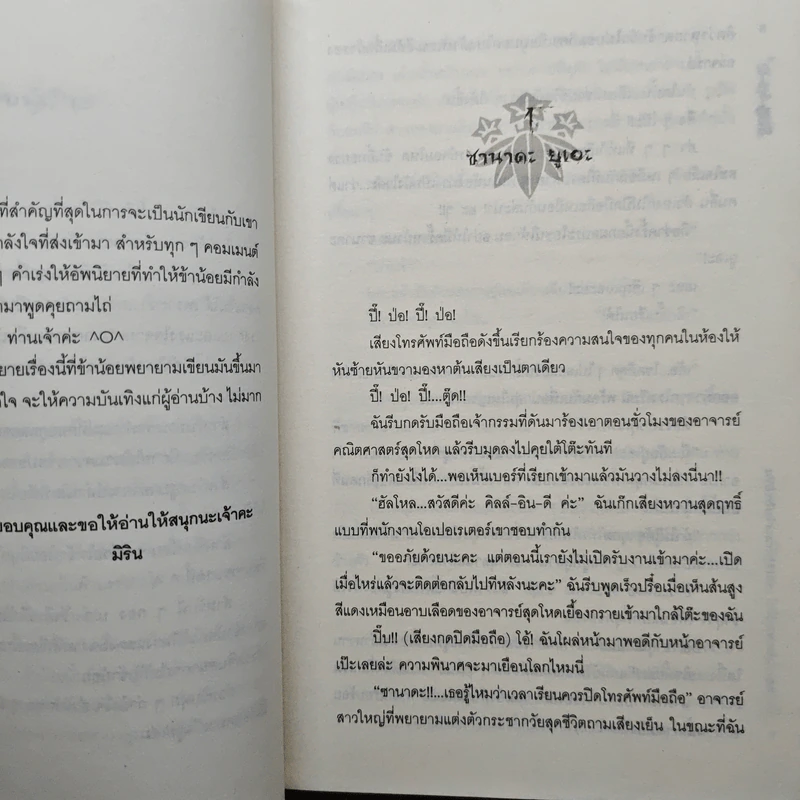 ที่สำคัญที่สุดในการจะเป็นนักเขียนกับเขา
ลังใจที่ส่งเข้ามา สำหรับทุก ๆ คอมเมนต์
ๆ คำเร่งให้อัพนิยายที่ทำให้ข้าน้อยมีกำลัง
ามาพูดคุยถามไถ่
ท่านเจ้าค่ะ ^O^
ยายเรื่องนี้ที่ข้าน้อยพยายามเขียนมันขึ้นมา
ใจ จะให้ความบันเทิงแก่ผู้อ่านบ้าง ไม่มาก
ขอบคุณและขอให้อ่านให้สนุกนะเจ้าคะ
มิริน
1
ซานาดะ ยูเอะ
ปี๊! ป่อ! ปี๊! ป่อ!
เสียงโทรศัพท์มือถือดังขึ้นเรียกร้องความสนใจของทุกคนในห้องให้
หันซ้ายหันขวามองหาต้นเสียงเป็นตาเดียว
ปี๊! ป่อ! ปี๊!...ตู๊ด!!
ฉันรีบกดรับมือถือเจ้ากรรมที่ดันมาร้องเอาตอนชั่วโมงของอาจารย์
คณิตศาสตร์สุดโหด แล้วรีบมุดลงไปคุยใต้โต๊ะทันที
ก็ทำยังไงได้...พอเห็นเบอร์ที่เรียกเข้ามาแล้วมันวางไม่ลงนี่นา!!
“ฮัลโหล...สวัสดีค่ะ คิลล์-อิน-ดี ค่ะ” ฉันเก๊กเสียงหวานสุดฤทธิ์
แบบที่พนักงานโอเปอเรเตอร์เขาชอบทำกัน
“ขออภัยด้วยนะคะ แต่ตอนนี้เรายังไม่เปิดรับงานเข้ามาค่ะ...เปิด
เมื่อไหร่แล้วจะติดต่อกลับไปทีหลังนะคะ” ฉันรีบพูดเร็วปรื๋อเมื่อเห็นส้นสูง
สีแดงเหมือนอาบเลือดของอาจารย์สุดโหดเยื้องกรายเข้ามาใกล้โต๊ะของฉัน
ปี๊บ!! (เสียงกดปิดมือถือ) โอ้! ฉันโผล่หน้ามาพอดีกับหน้าอาจารย์
เป๊ะเลยล่ะ ความพินาศจะมาเยือนโลกไหมนี่
“ซานาดะ!!...เธอรู้ไหมว่าเวลาเรียนควรปิดโทรศัพท์มือถือ” อาจารย์
สาวใหญ่ที่พยายามแต่งตัวกระชากวัยสุดชีวิตถามเสียงเย็น ในขณะที่ฉัน